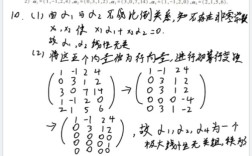 10. (1) 由 α₁ 与 α₂ 不成比例关系,知不存在非零数
x₁, x₂ 使 x₁α₁+x₂α₂=0.
故 α₁, α₂ 线性无关
(2) 将这五个向量按行向量,进行初等行变换
1 -1 2 4
0 3 1 2
3 0 7 14
1 -1 2 0
2 1 5 6
→
1 -1 2 4
0 3 1 2
0 3 1 2
0 0 0 -4
0 3 1 -2
→
1 -1 2 4
0 3 1 2
0 0 0 1
0 0 0 0
故 α₁, α₂, α₄ 为一个
极大线性无关组, 秩为